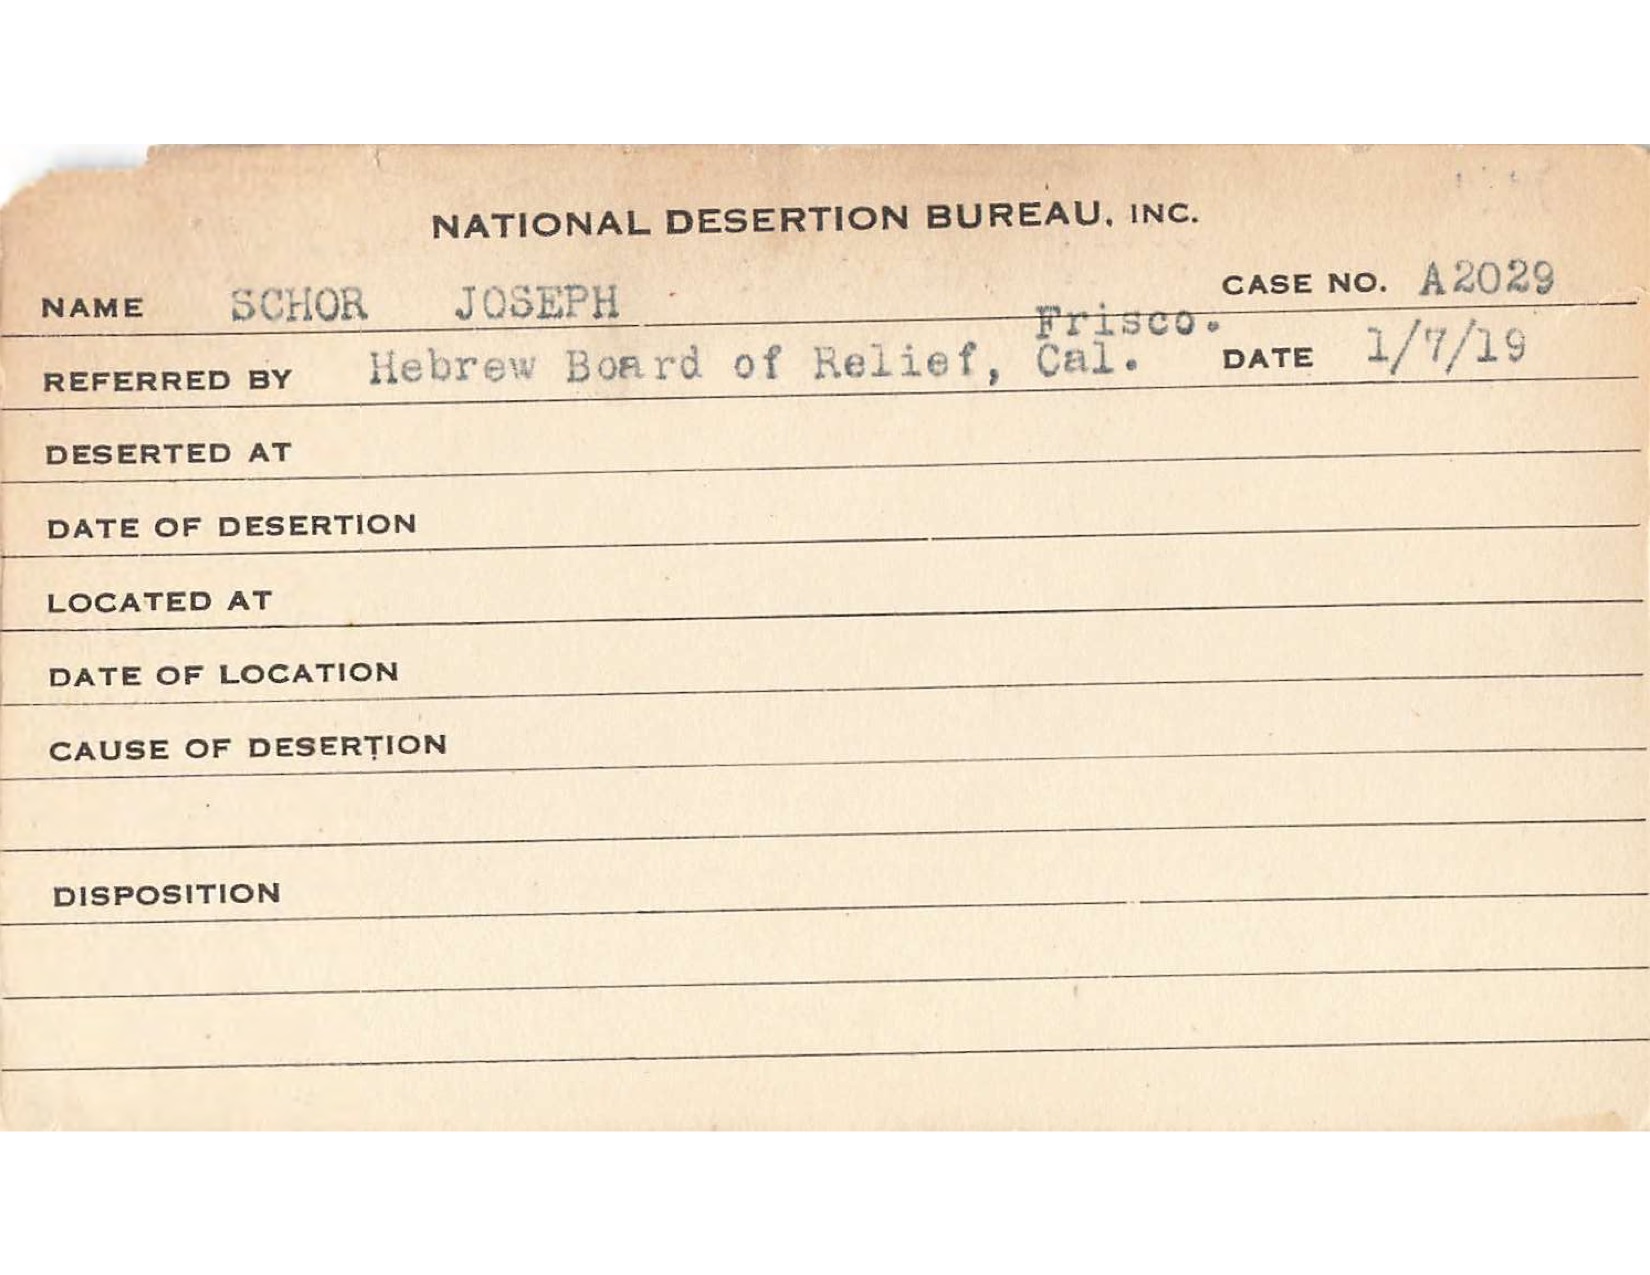 NATIONAL DESERTION BUREAU, INC.
NAME SCHOR JOSEPH CASE NO. A2029
Frisco.
REFERRED BY Hebrew Board of Relief, Cal. DATE 1/7/19
DESERTED AT
DATE OF DESERTION
LOCATED AT
DATE OF LOCATION
CAUSE OF DESERTION
DISPOSITION